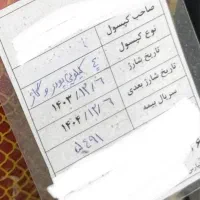 صاحب کپسول
نوع کپسول ۴ کیلویی پودر و گاز
تاریخ شارژ ۱۴۰۳/۱۲/۶
تاریخ شارژ بعدی ۱۴۰۴/۱۲/۶
سریال بیمه ۵۴۹۱